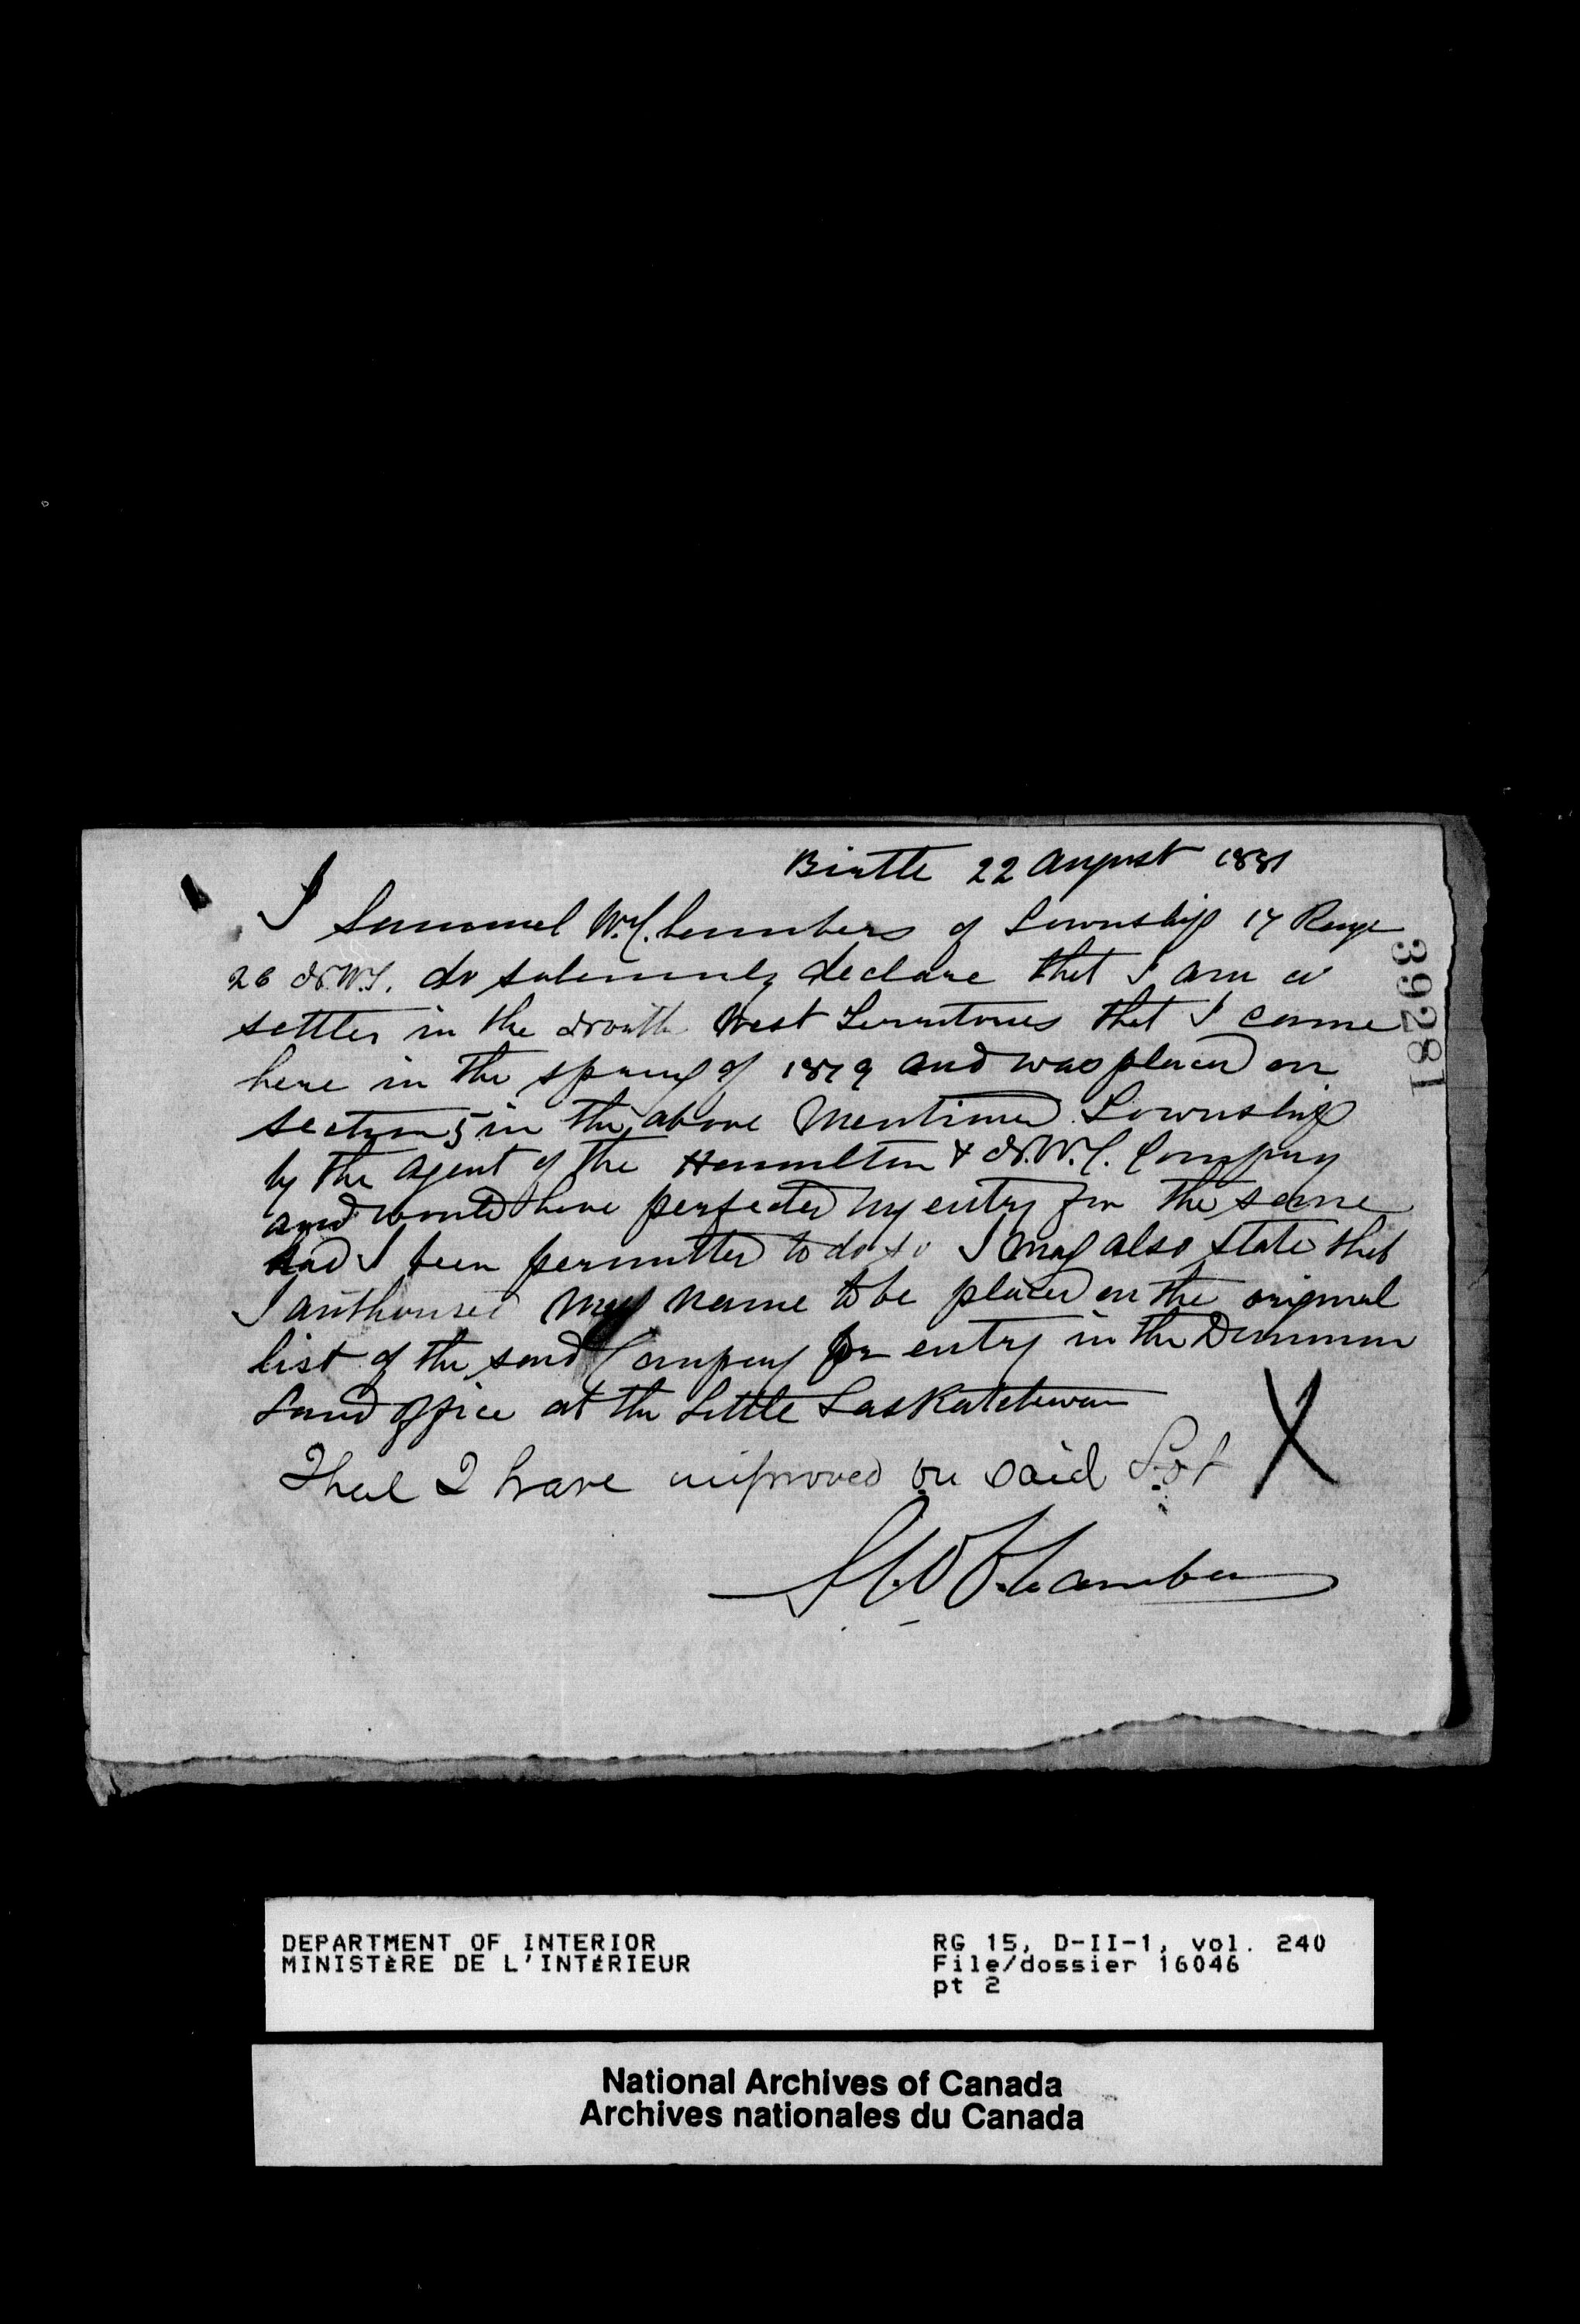 Birtle 22 August 1881
I Samuel W. Chambers of Township 17 Range
26 N.W.T. do solemnly declare that I am a
settler in the North West Territories that I came
here in the spring of 1879 and was placed on
section 5 in the above mentioned Township
by the agent of the Hamilton & N.W.C. Company
and would have perfected my entry for the same
had I been permitted to do so I may also state that
I authorised my name to be placed on the original
list of the said Company for entry in the Dominion
Land Office at the Little Saskatchewan
That I have improved on said Lot X
S.W. Chambers
39281
DEPARTMENT OF INTERIOR
MINISTÈRE DE L'INTÉRIEUR
RG 15, D-II-1, vol. 240
File/dossier 16046
pt 2
National Archives of Canada
Archives nationales du Canada